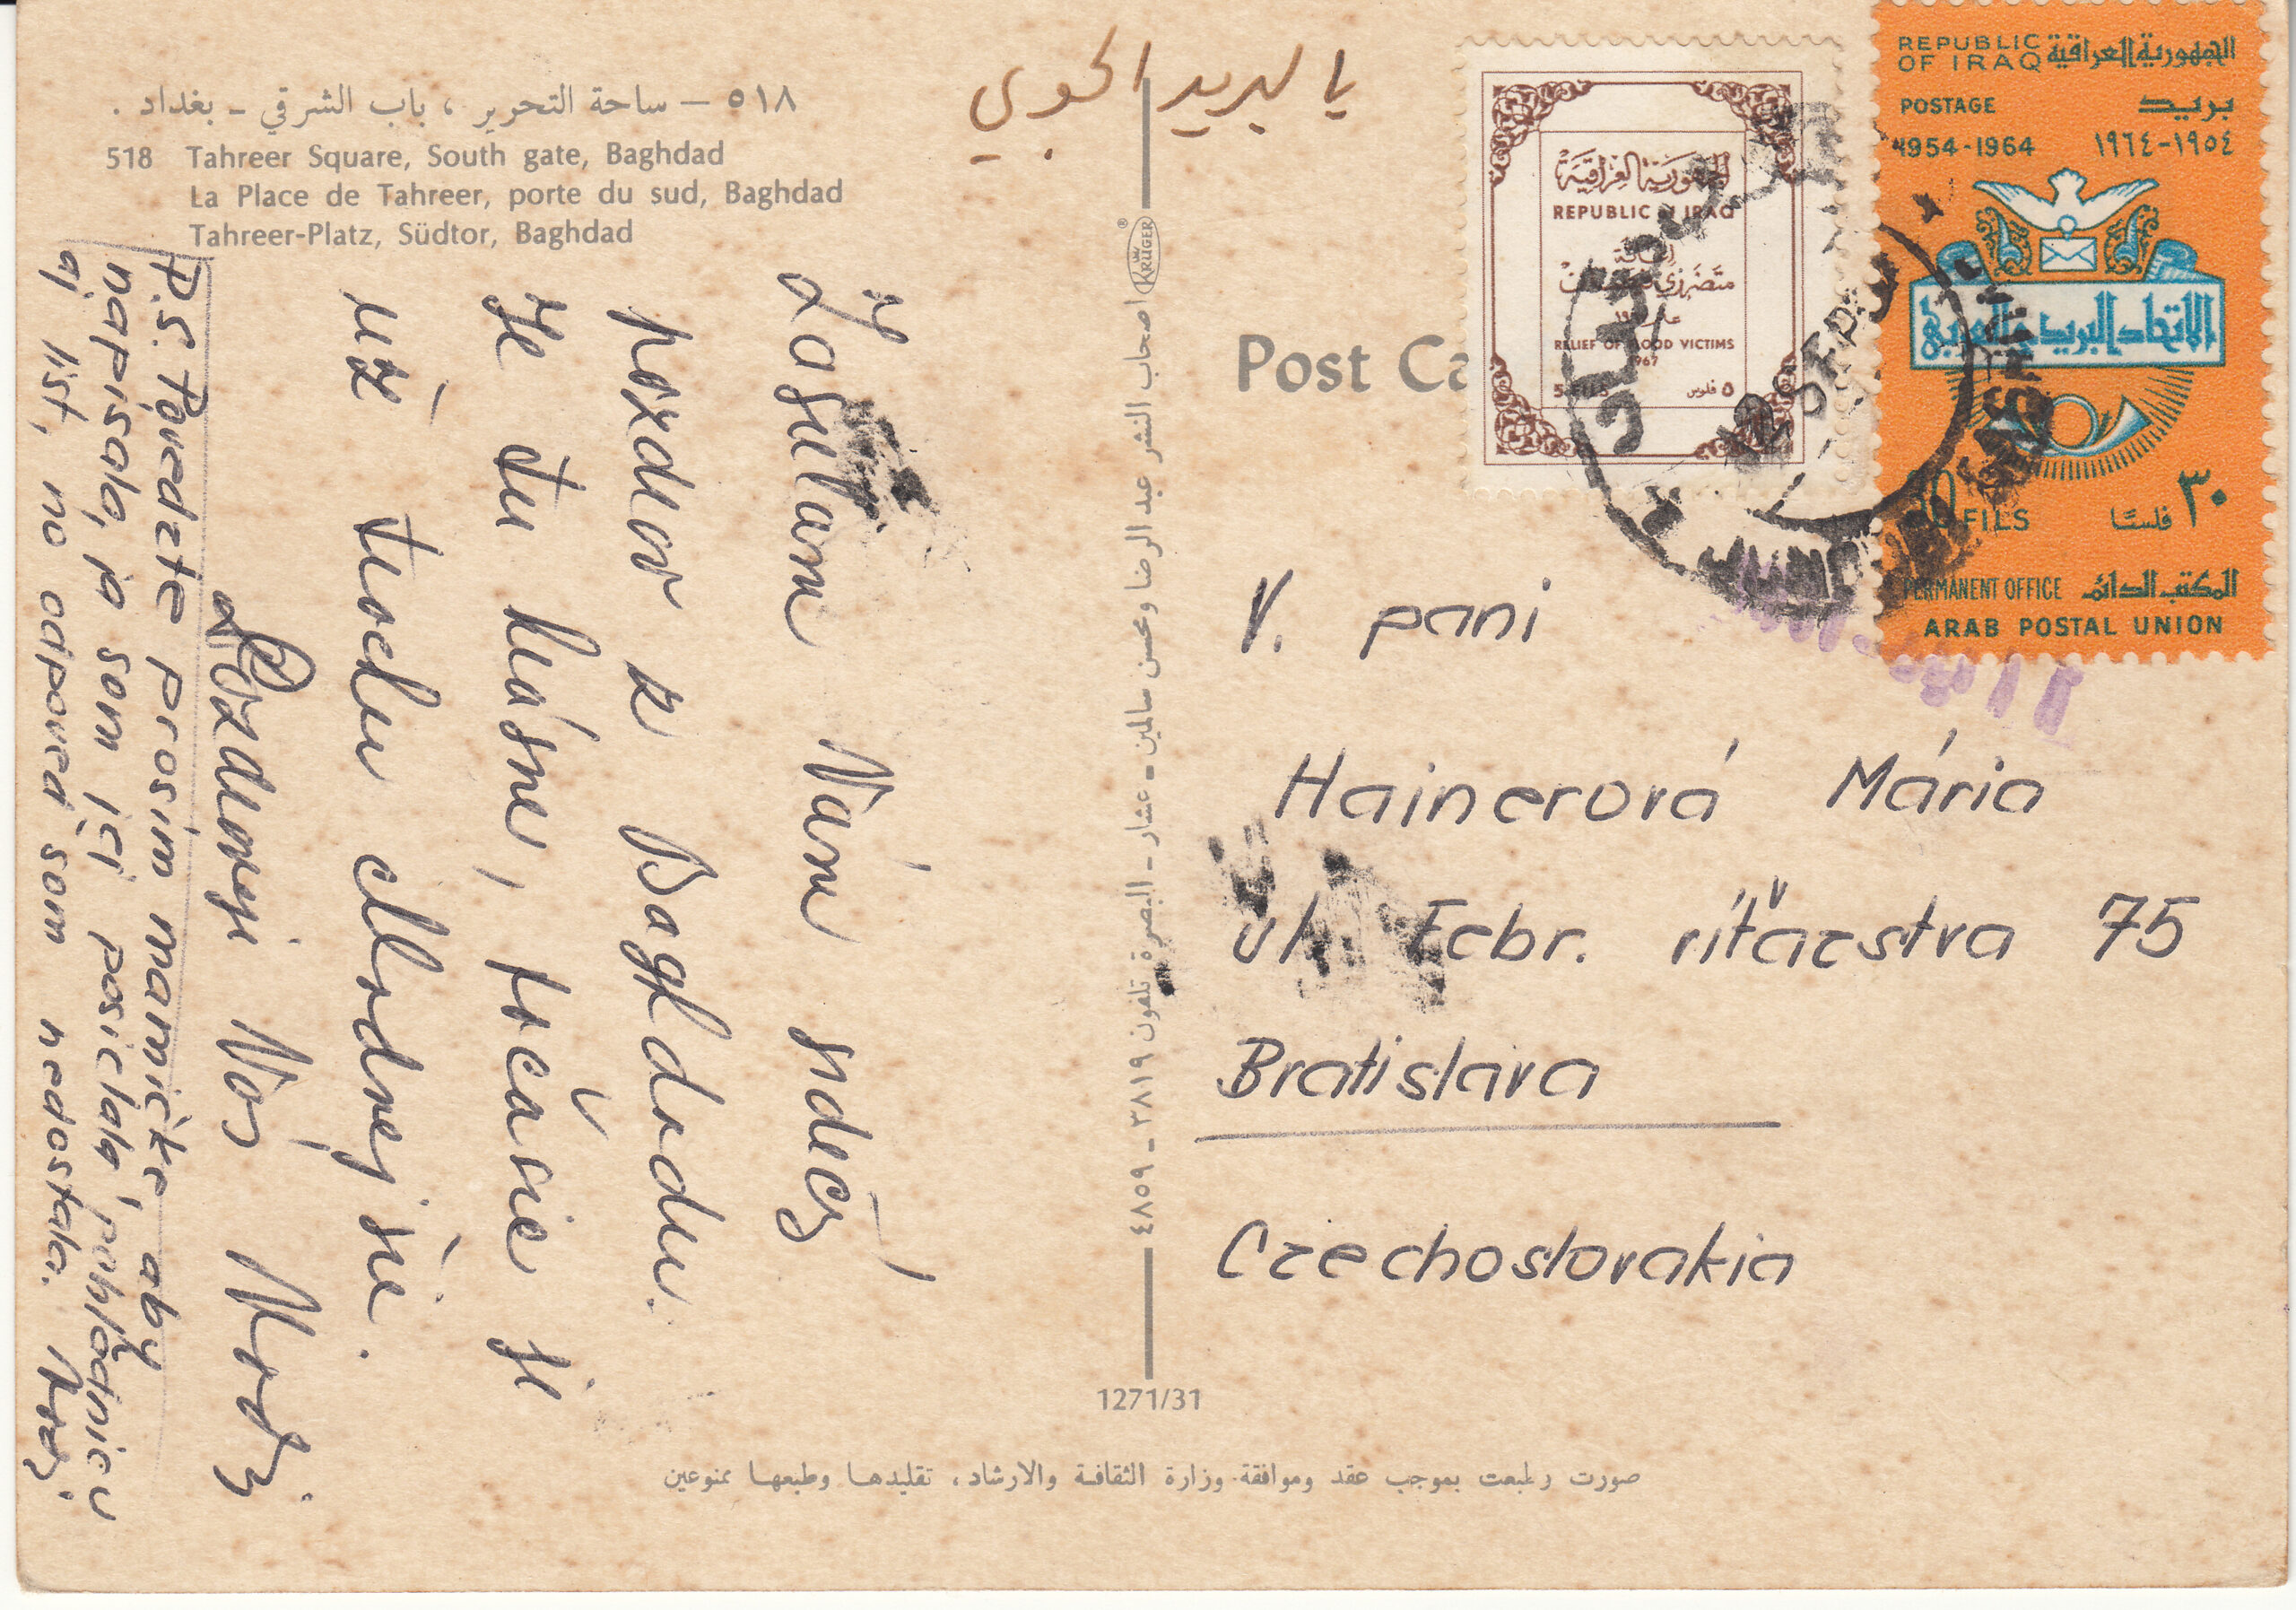 ٥١٨ – ساحة التحرير ، باب الشرقي - بغداد .
518 Tahreer Square, South gate, Baghdad
La Place de Tahreer, porte du sud, Baghdad
Tahreer-Platz, Südtor, Baghdad
بالبريد الجوي
Zasielam Vám srdečný
pozdrav z Bagdadu.
Je tu krásne, počasie je
už trochu chladnejšie.
Pozdravuje Vás
P.S. Povedzte prosím mamičke, aby
napísala, ja som jej posielala pohľadnicu
aj list, no odpoveď som nedostala.
KRÜGER ®
اصحاب النشر عبد الرضا ومحسن سالمين - عشار - البصرة تلفون ٣٨١٩ - ٤٨٥٩
1271/31
Post Ca
REPUBLIC OF IRAQ
RELIEF OF FLOOD VICTIMS
1967
٥ فلوس
REPUBLIC OF IRAQ الجمهورية العراقية
POSTAGE بريد
1954-1964 ١٩٥٤-١٩٦٤
الاتحاد البريدي العربي
30 FILS ٣٠ فلسًا
PERMANENT OFFICE المكتب الدائم
ARAB POSTAL UNION
V. pani
Hainerová Mária
ul. Febr. víťazstva 75
Bratislava
Czechoslovakia
صورت وطبعت بموجب عقد وموافقة وزارة الثقافة والارشاد، تقليدها وطبعها ممنوعين